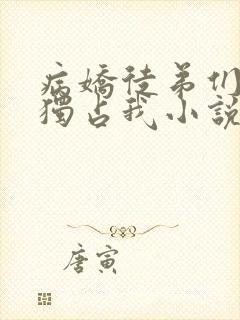 病嬌徒弟们
獨占我小說
唐寅